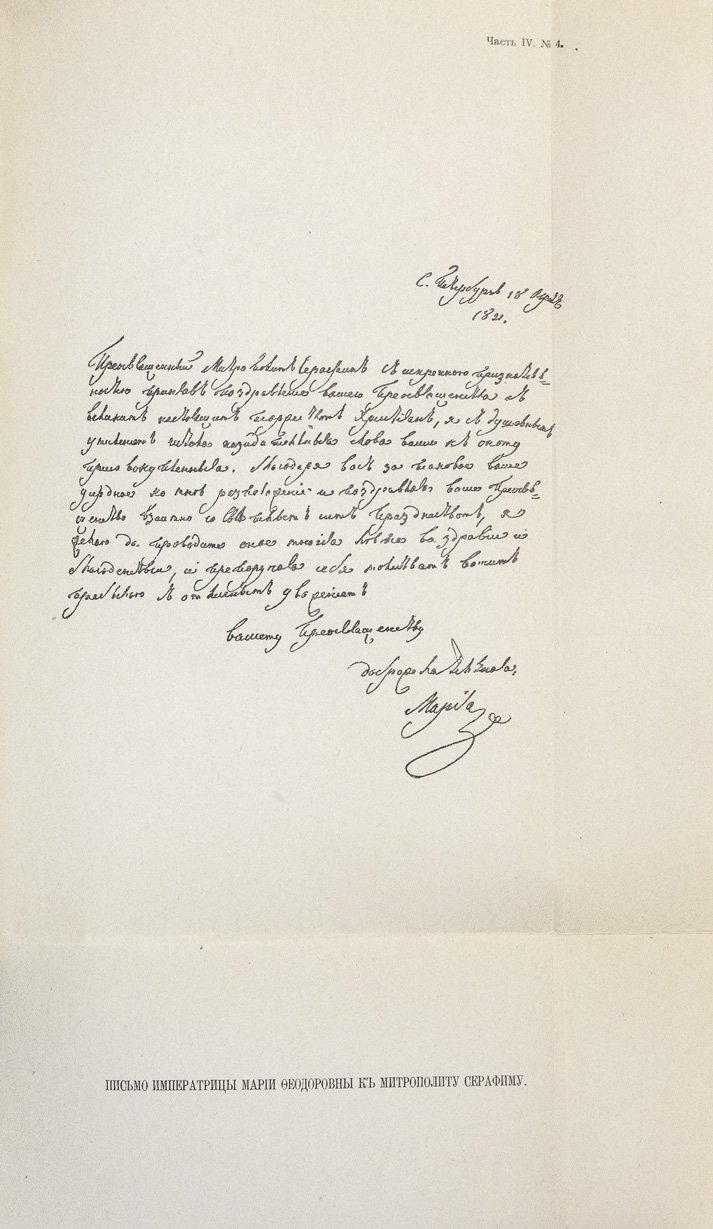 Часть IV. № 4.
С. Петербургъ 18 Апрѣля
1821.
Преосвященный Митрополитъ Серафимъ! Съ искреннею признатель-
ностію принявъ поздравленіе вашего Преосвященства съ
великимъ настоящимъ торжествомъ Христіанъ, я съ душевнымъ
умиленіемъ читала назидательныя слова ваши къ оному
присовокупленныя. Благодаря васъ за таковое ваше
усердное ко мнѣ разположеніе и поздравляя ваше Преосвя-
щенство взаимно со симъ празднествомъ, я
желаю да проводите оное многія лѣта во здравіи и
благоденствіи, и препоручая себя молитвамъ вашимъ
пребываю съ отличнымъ уваженіемъ
вашему Преосвященству
доброжелательная,
Марія
ПИСЬМО ИМПЕРАТРИЦЫ МАРІИ ѲЕОДОРОВНЫ КЪ МИТРОПОЛИТУ СЕРАФИМУ.